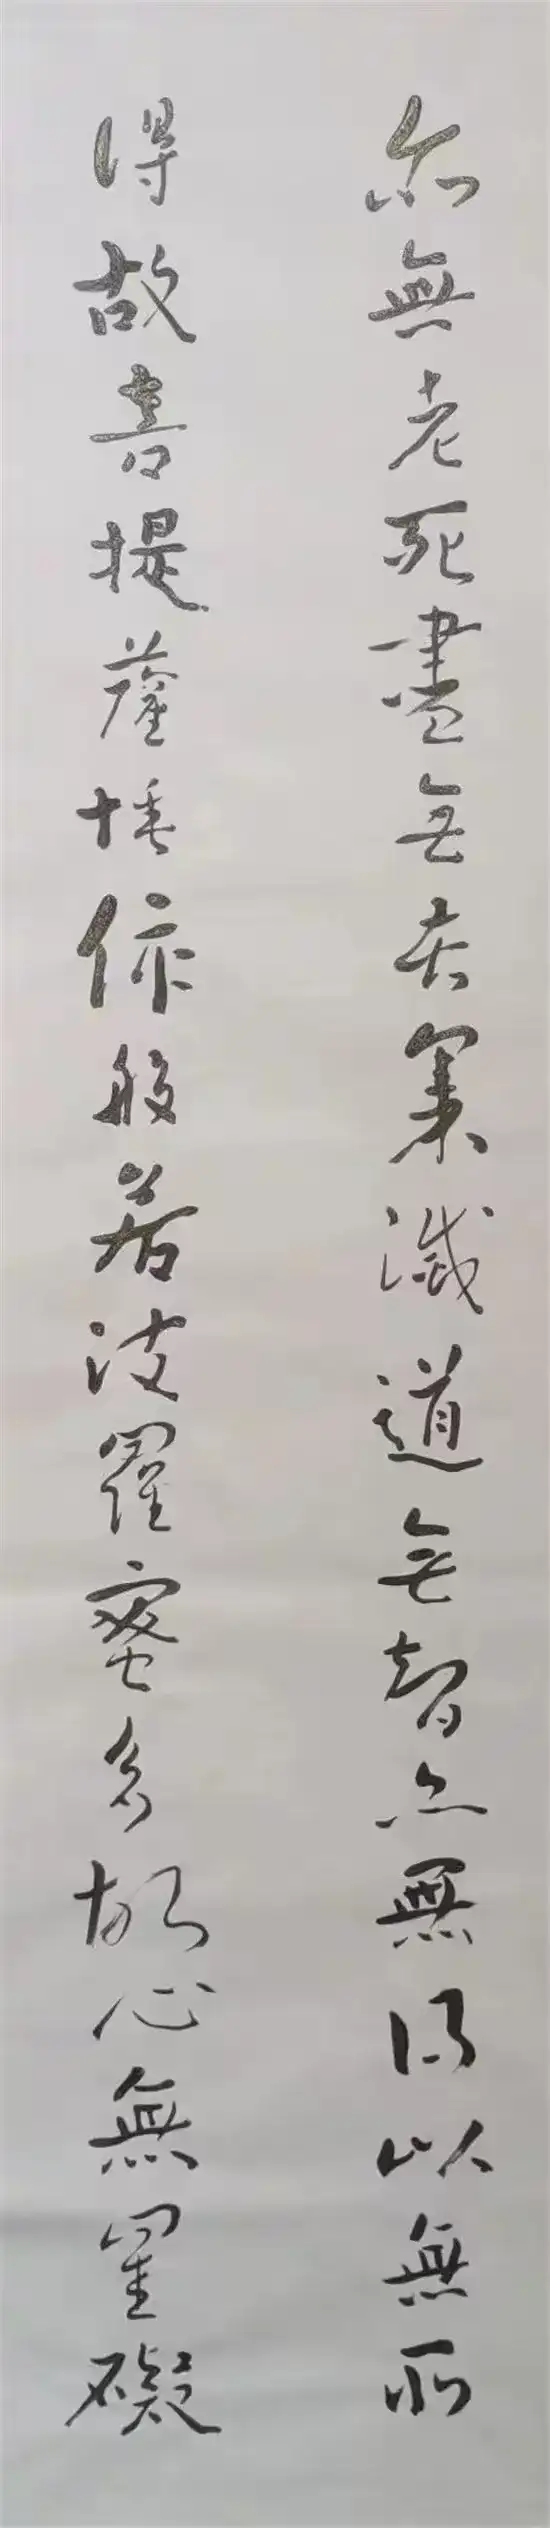 亦無老死盡無苦集滅道無智亦無得以無所
得故菩提薩埵依般若波羅蜜多故心無罣礙